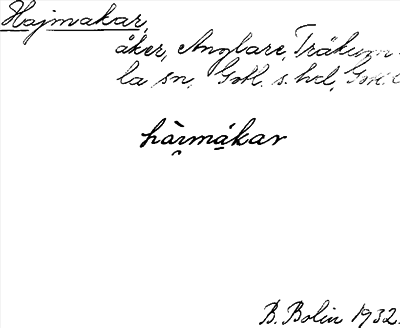 Hajmakar,
åker, Anglare, Träkum-
la sn, Gotl. s. hd, Gotl. l
hàı̯mákar
B. Bolin 1932.